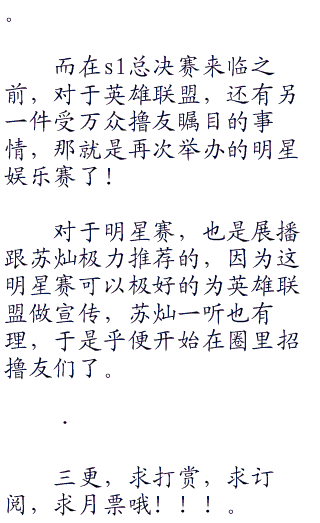 。
而在s1总决赛来临之
前，对于英雄联盟，还有另
一件受万众撸友瞩目的事
情，那就是再次举办的明星
娱乐赛了！
对于明星赛，也是展播
跟苏灿极力推荐的，因为这
明星赛可以极好的为英雄联
盟做宣传，苏灿一听也有
理，于是乎便开始在圈里招
撸友们了。
．
三更，求打赏，求订
阅，求月票哦！！！。